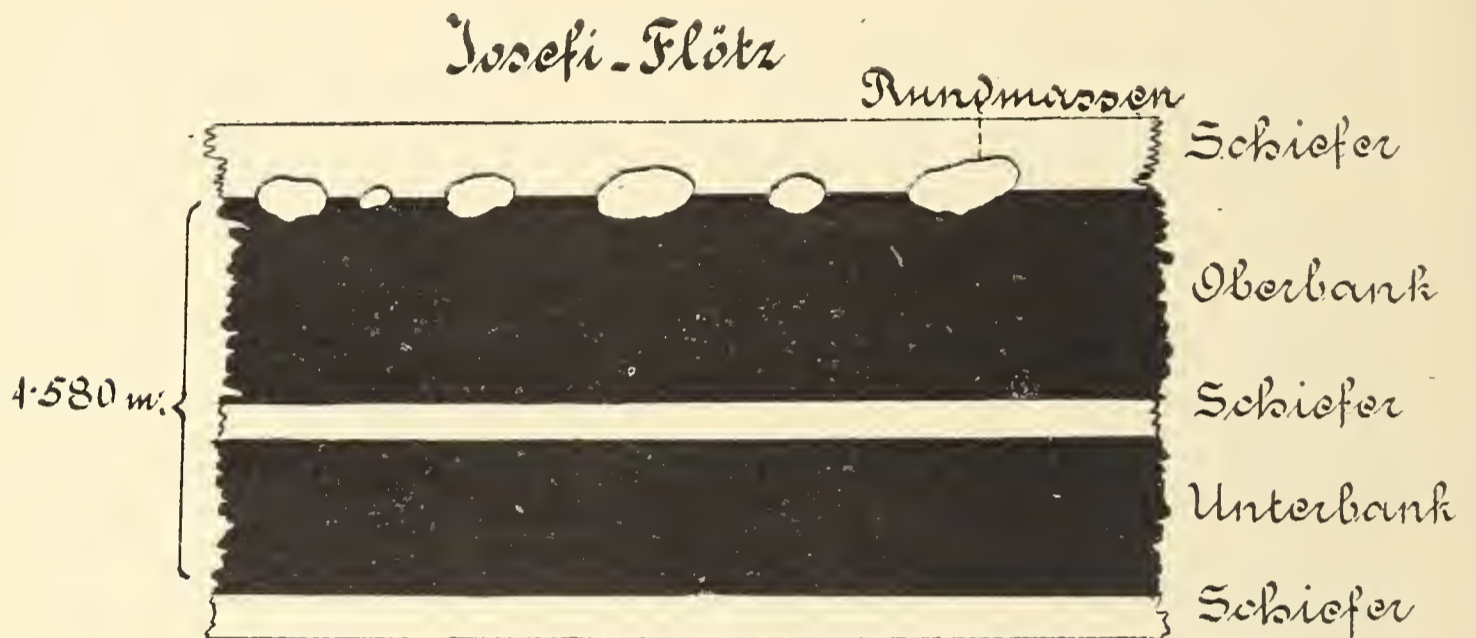 Josefi-Flötz
Rundmassen
Schiefer
Oberbank
1·580 m:
Schiefer
Unterbank
Schiefer